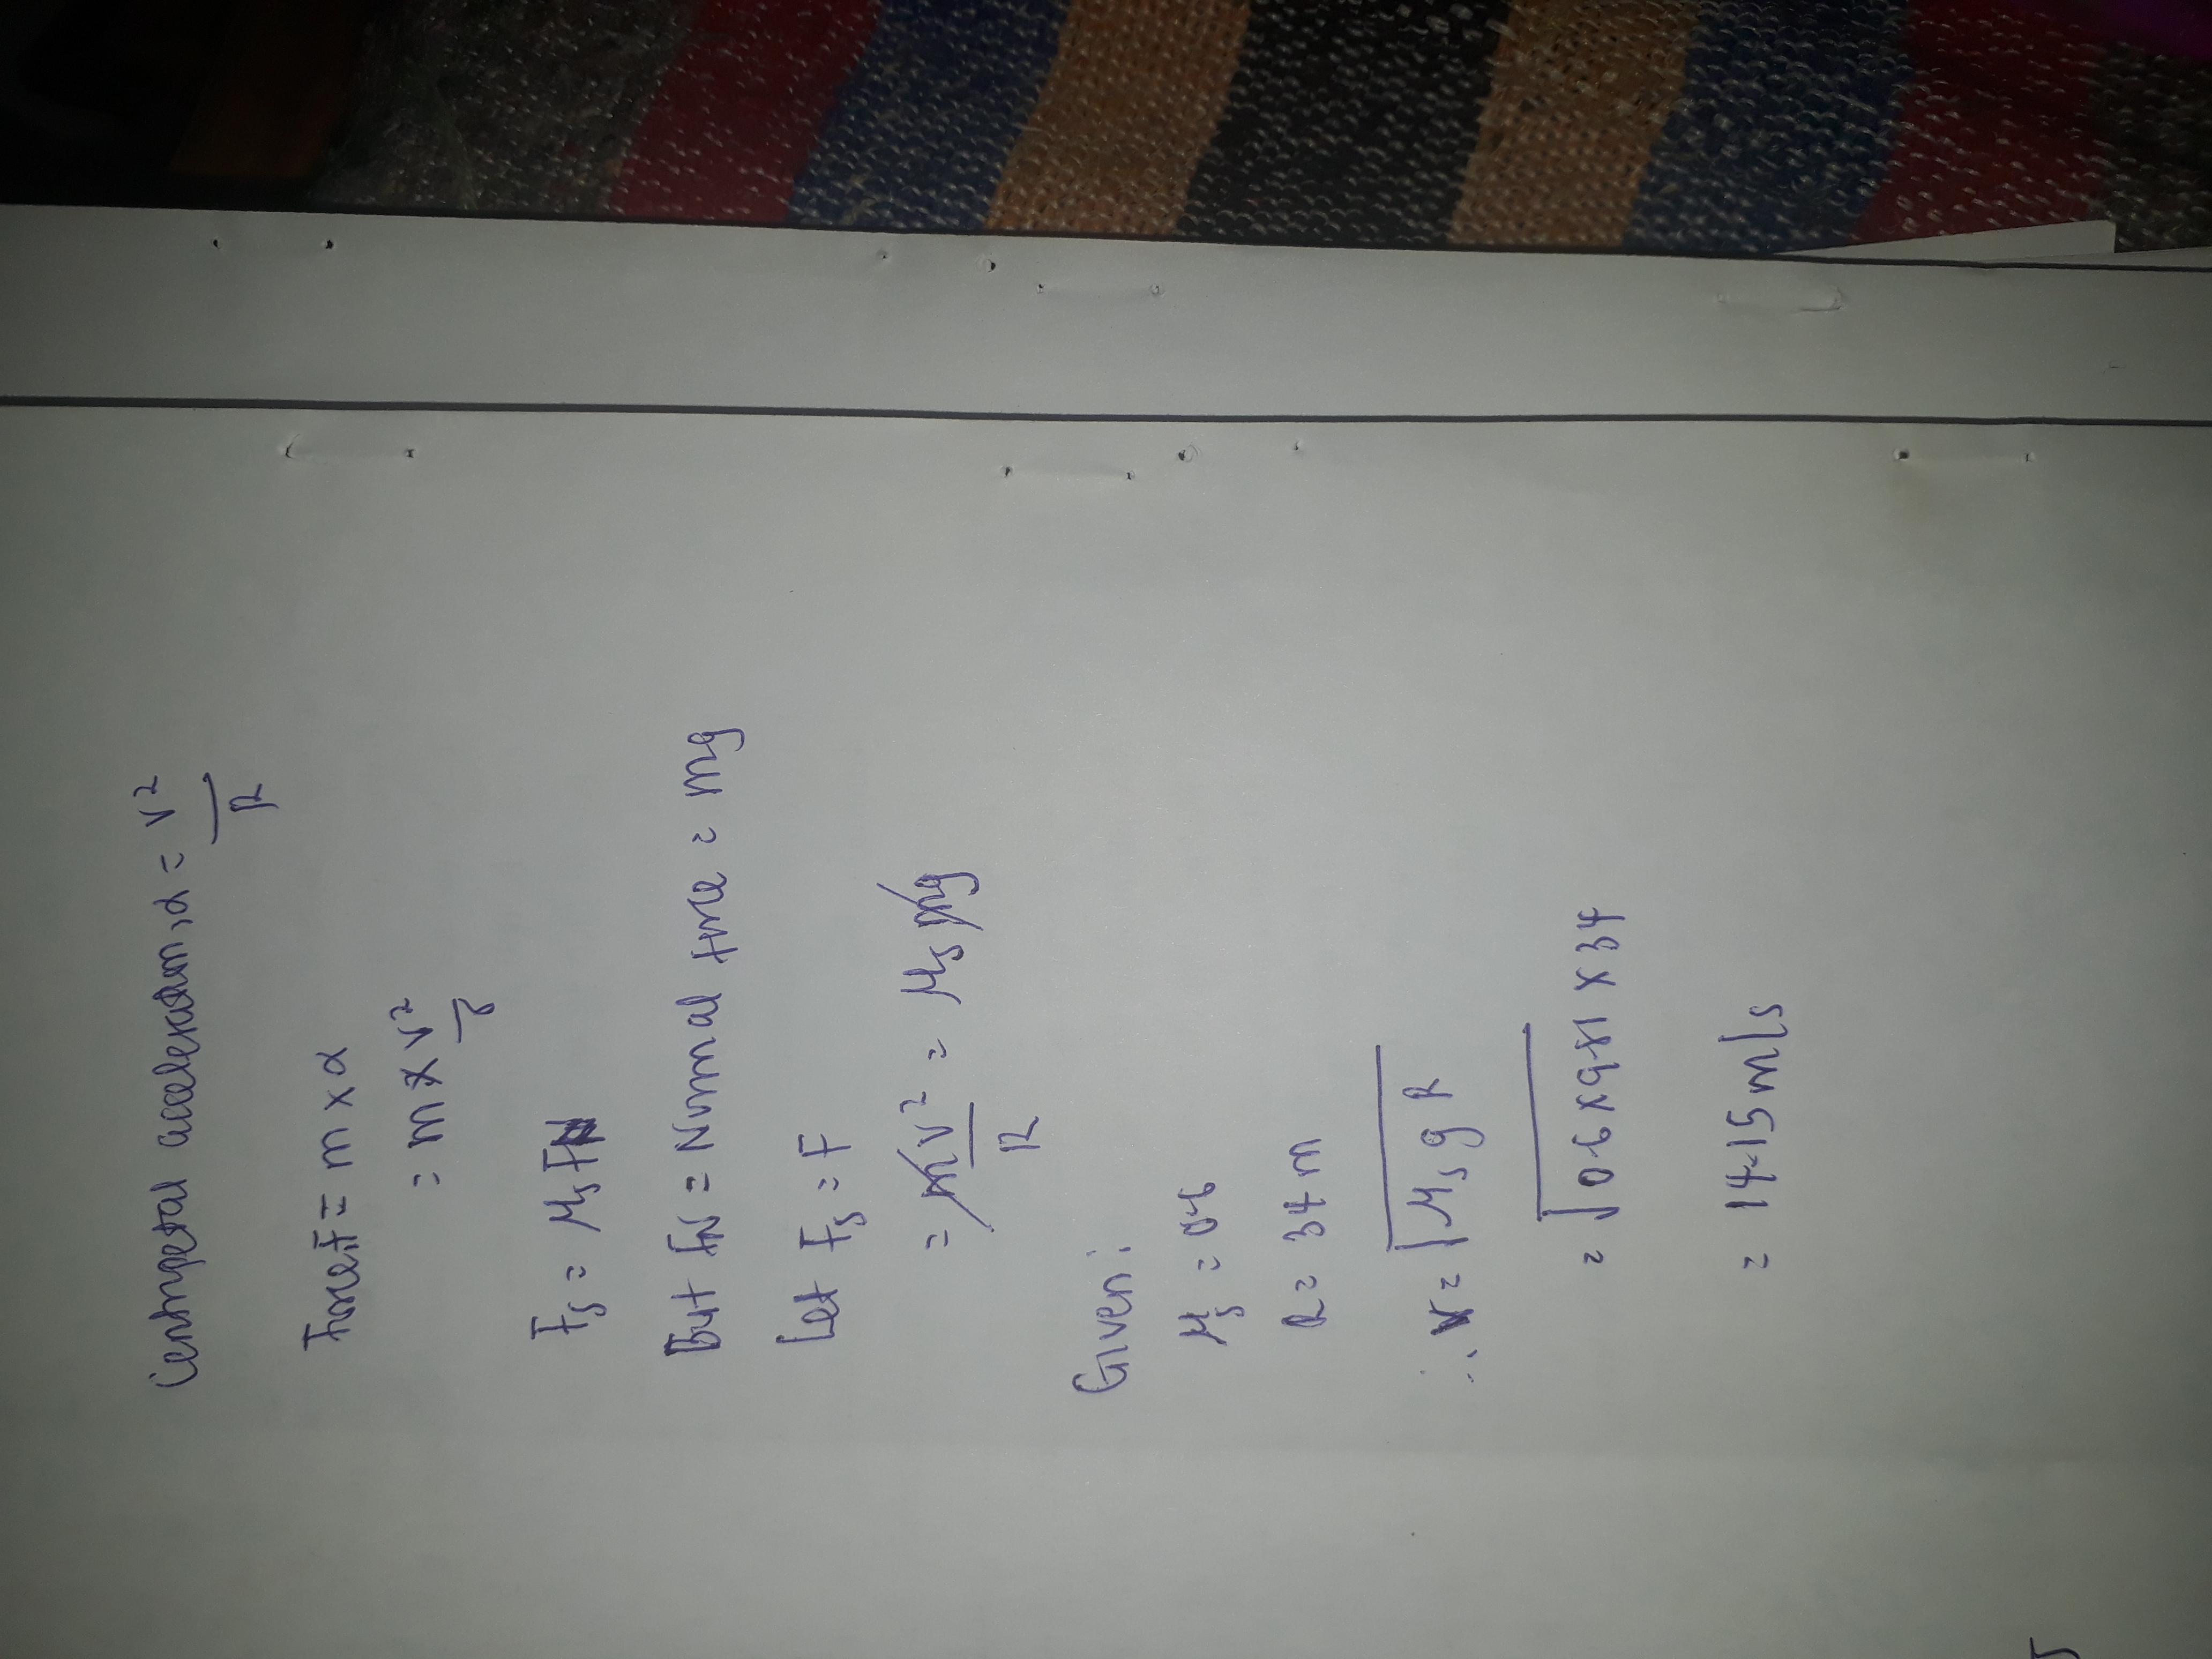 Centripetal acceleration, α = v²/R
Force, F = m x α
= m x v²/r
Fs = μs FN
But FN = Normal force = mg
Let Fs = F
= mv²/R = μs mg
Given:
μs = 0.6
R = 34 m
∴ v = √μs g R
= √0.6 x 9.81 x 34
= 14.15 m/s